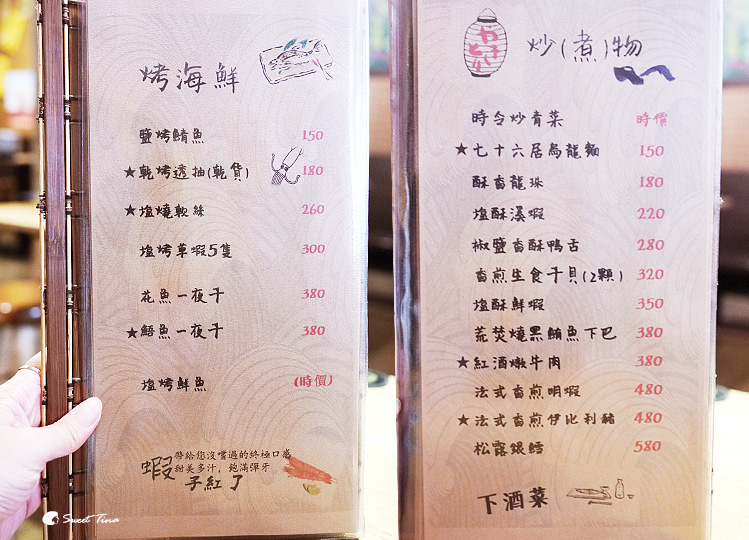 烤海鮮
鹽烤鯖魚 150
★乾烤透抽(乾貨) 180
★塩燒軟絲 260
塩烤草蝦5隻 300
花魚一夜干 380
★鯃魚一夜干 380
塩烤鮮魚 (時價)
蝦
帶給您沒嚐過的終極口感
甜美多汁，飽滿彈牙
子紅了
Sweet Tina
やきとり
炒(煮)物
時令炒青菜 時價
★七十六居烏龍麵 150
酥香龍珠 180
塩酥溪蝦 220
椒鹽香酥鴨舌 280
香煎生食干貝(2顆) 320
塩酥鮮蝦 350
荒焚燒黑鮪魚下巴 380
★紅酒燉牛肉 380
法式香煎明蝦 480
★法式香煎伊比利豬 480
松露銀鱈 580
下酒菜